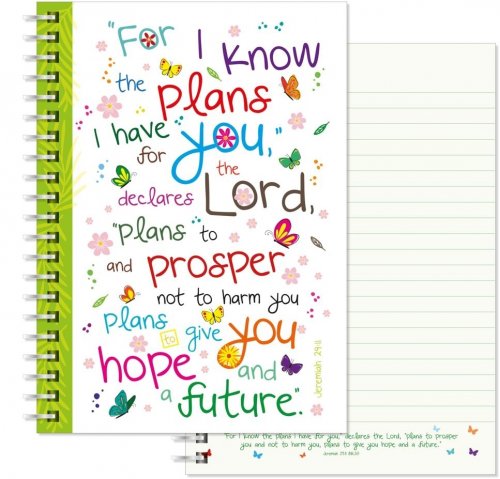 "For I know
the plans
I have you,"
for the
declares Lord,
"plans to
and prosper
not to harm you
plans to give you
hope and
a future".
Jeremiah 29:11
"For I know the plans I have for you," declares the Lord, "plans to prosper
you and not to harm you, plans to give you hope and a future."
Jeremiah 29:11